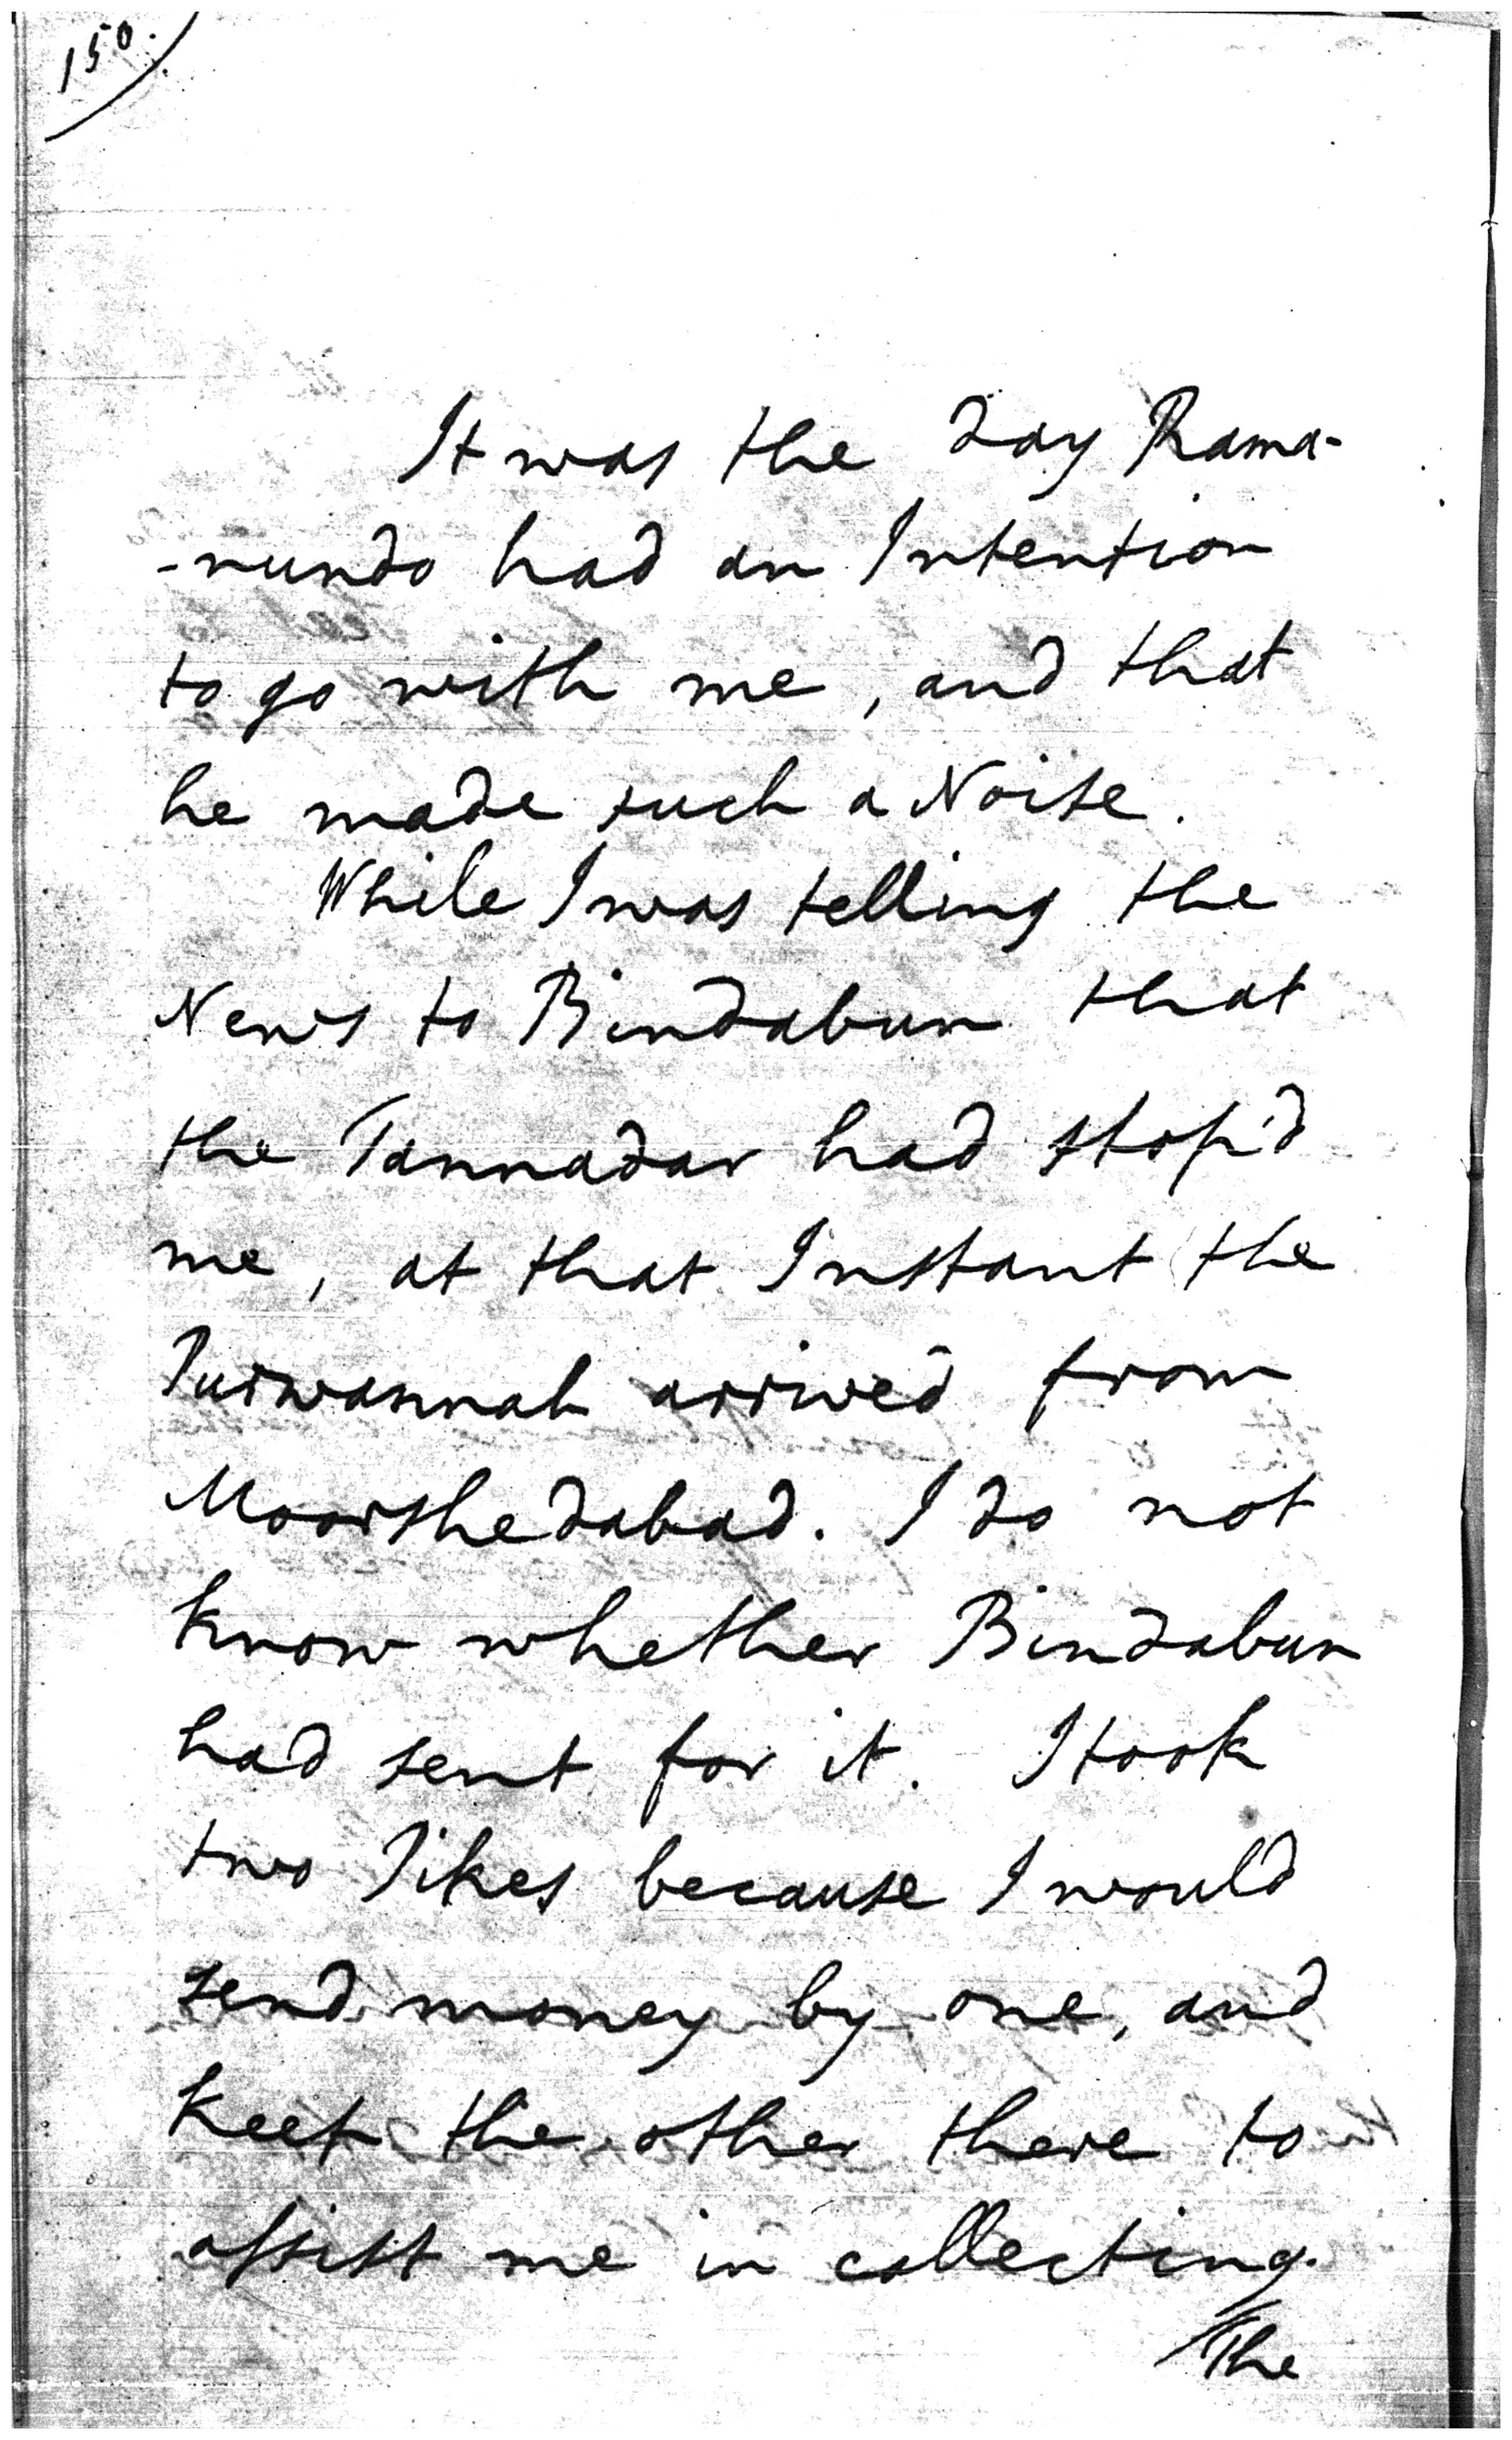 150.
It was the day Rama-
-nundo had an Intention
to go with me, and that
he made such a Noise.
While I was telling the
News to Bindabun that
the Tannadar had stop'd
me, at that Instant the
Purwannah arrived from
Moorshedabad. I do not
know whether Bindabun
had sent for it. I took
two Pikes because I would
send money by one, and
keep the other there to
assist me in collecting.
The